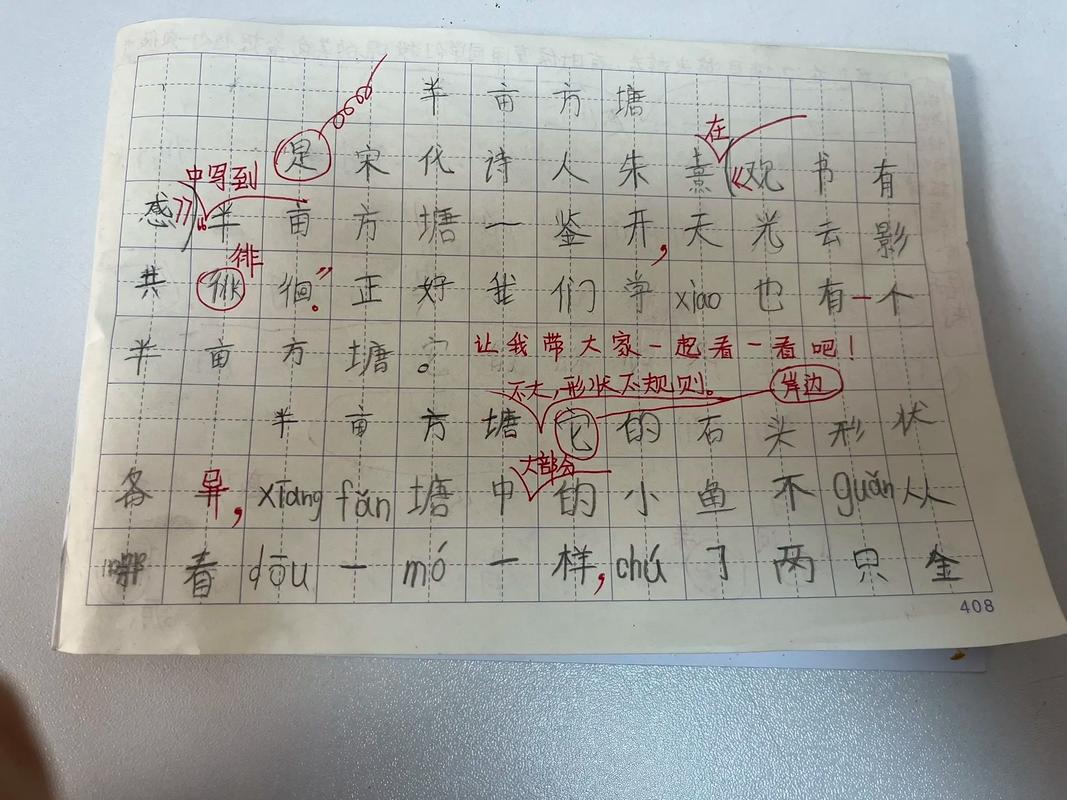 半亩方塘
在
是宋代诗人朱熹《观书有
中写到
感》半亩方塘一鉴开,天光云影
徘
共徘徊。”正好我们学xiào也有一个
半亩方塘。让我带大家一起看一看吧!
不大,形状不规则。岸边
半亩方塘它的石头形状
大部分
各异,xiāngfǎn塘中的小鱼不guǎn从
哪看dōu一mó一样,chú了两只金
408